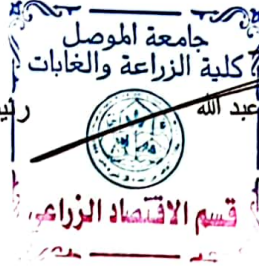 جامعة الموصل
كلية الزراعة والغابات
عبد الله
قسم الاقتصاد الزراعي